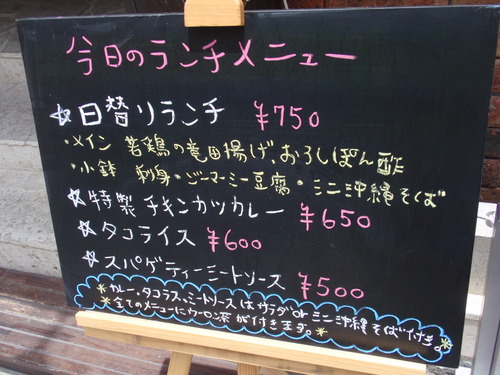 今日のランチメニュー
☆日替りランチ ¥750
・メイン 若鶏の竜田揚げ、おろしぽん酢
・小鉢 刺身・ジーマーミー豆腐・ミニ沖縄そば
☆特製チキンカツカレー ¥650
☆タコライス ¥600
☆スパゲティーミートソース ¥500
*カレー、タコラス、ミートソースはサラダorミニ沖縄そば付き。*
*全てのメニューにウーロン茶が付きます。*